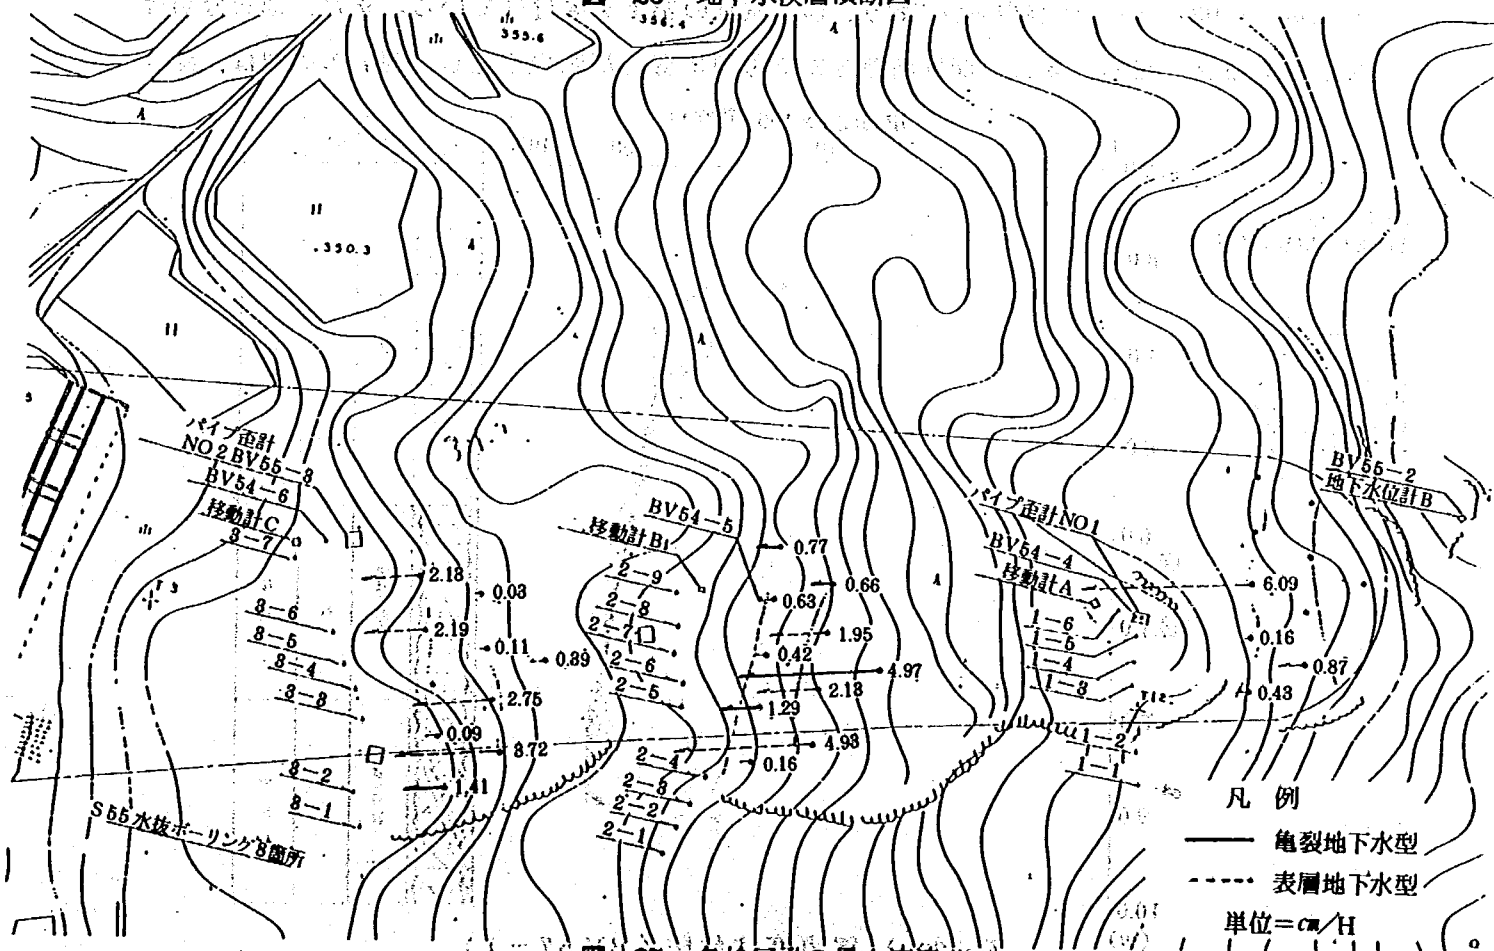 355.6
356.4
350.3
パイプ歪計
NO 2 BV55-3
BV54-6
移動計C
3-7
T 3
3-6
3-5
3-4
3-3
3-2
3-1
S55水抜ボーリング8箇所
2.18
0.03
2.19
0.11
0.89
2.75
0.09
8.72
1.41
BV54-5
移動計B
2-9
2-8
2-7
2-6
2-5
2-4
2-3
2-2
2-1
0.77
0.66
0.63
1.95
0.42
4.97
2.18
1.29
4.98
0.16
パイプ歪計NO1
BV54-4
移動計A
1-6
1-5
1-4
1-3
1-2
1-1
BV55-2
地下水位計B
6.09
0.16
0.87
0.43
凡 例
亀裂地下水型
表層地下水型
単位=cm/H